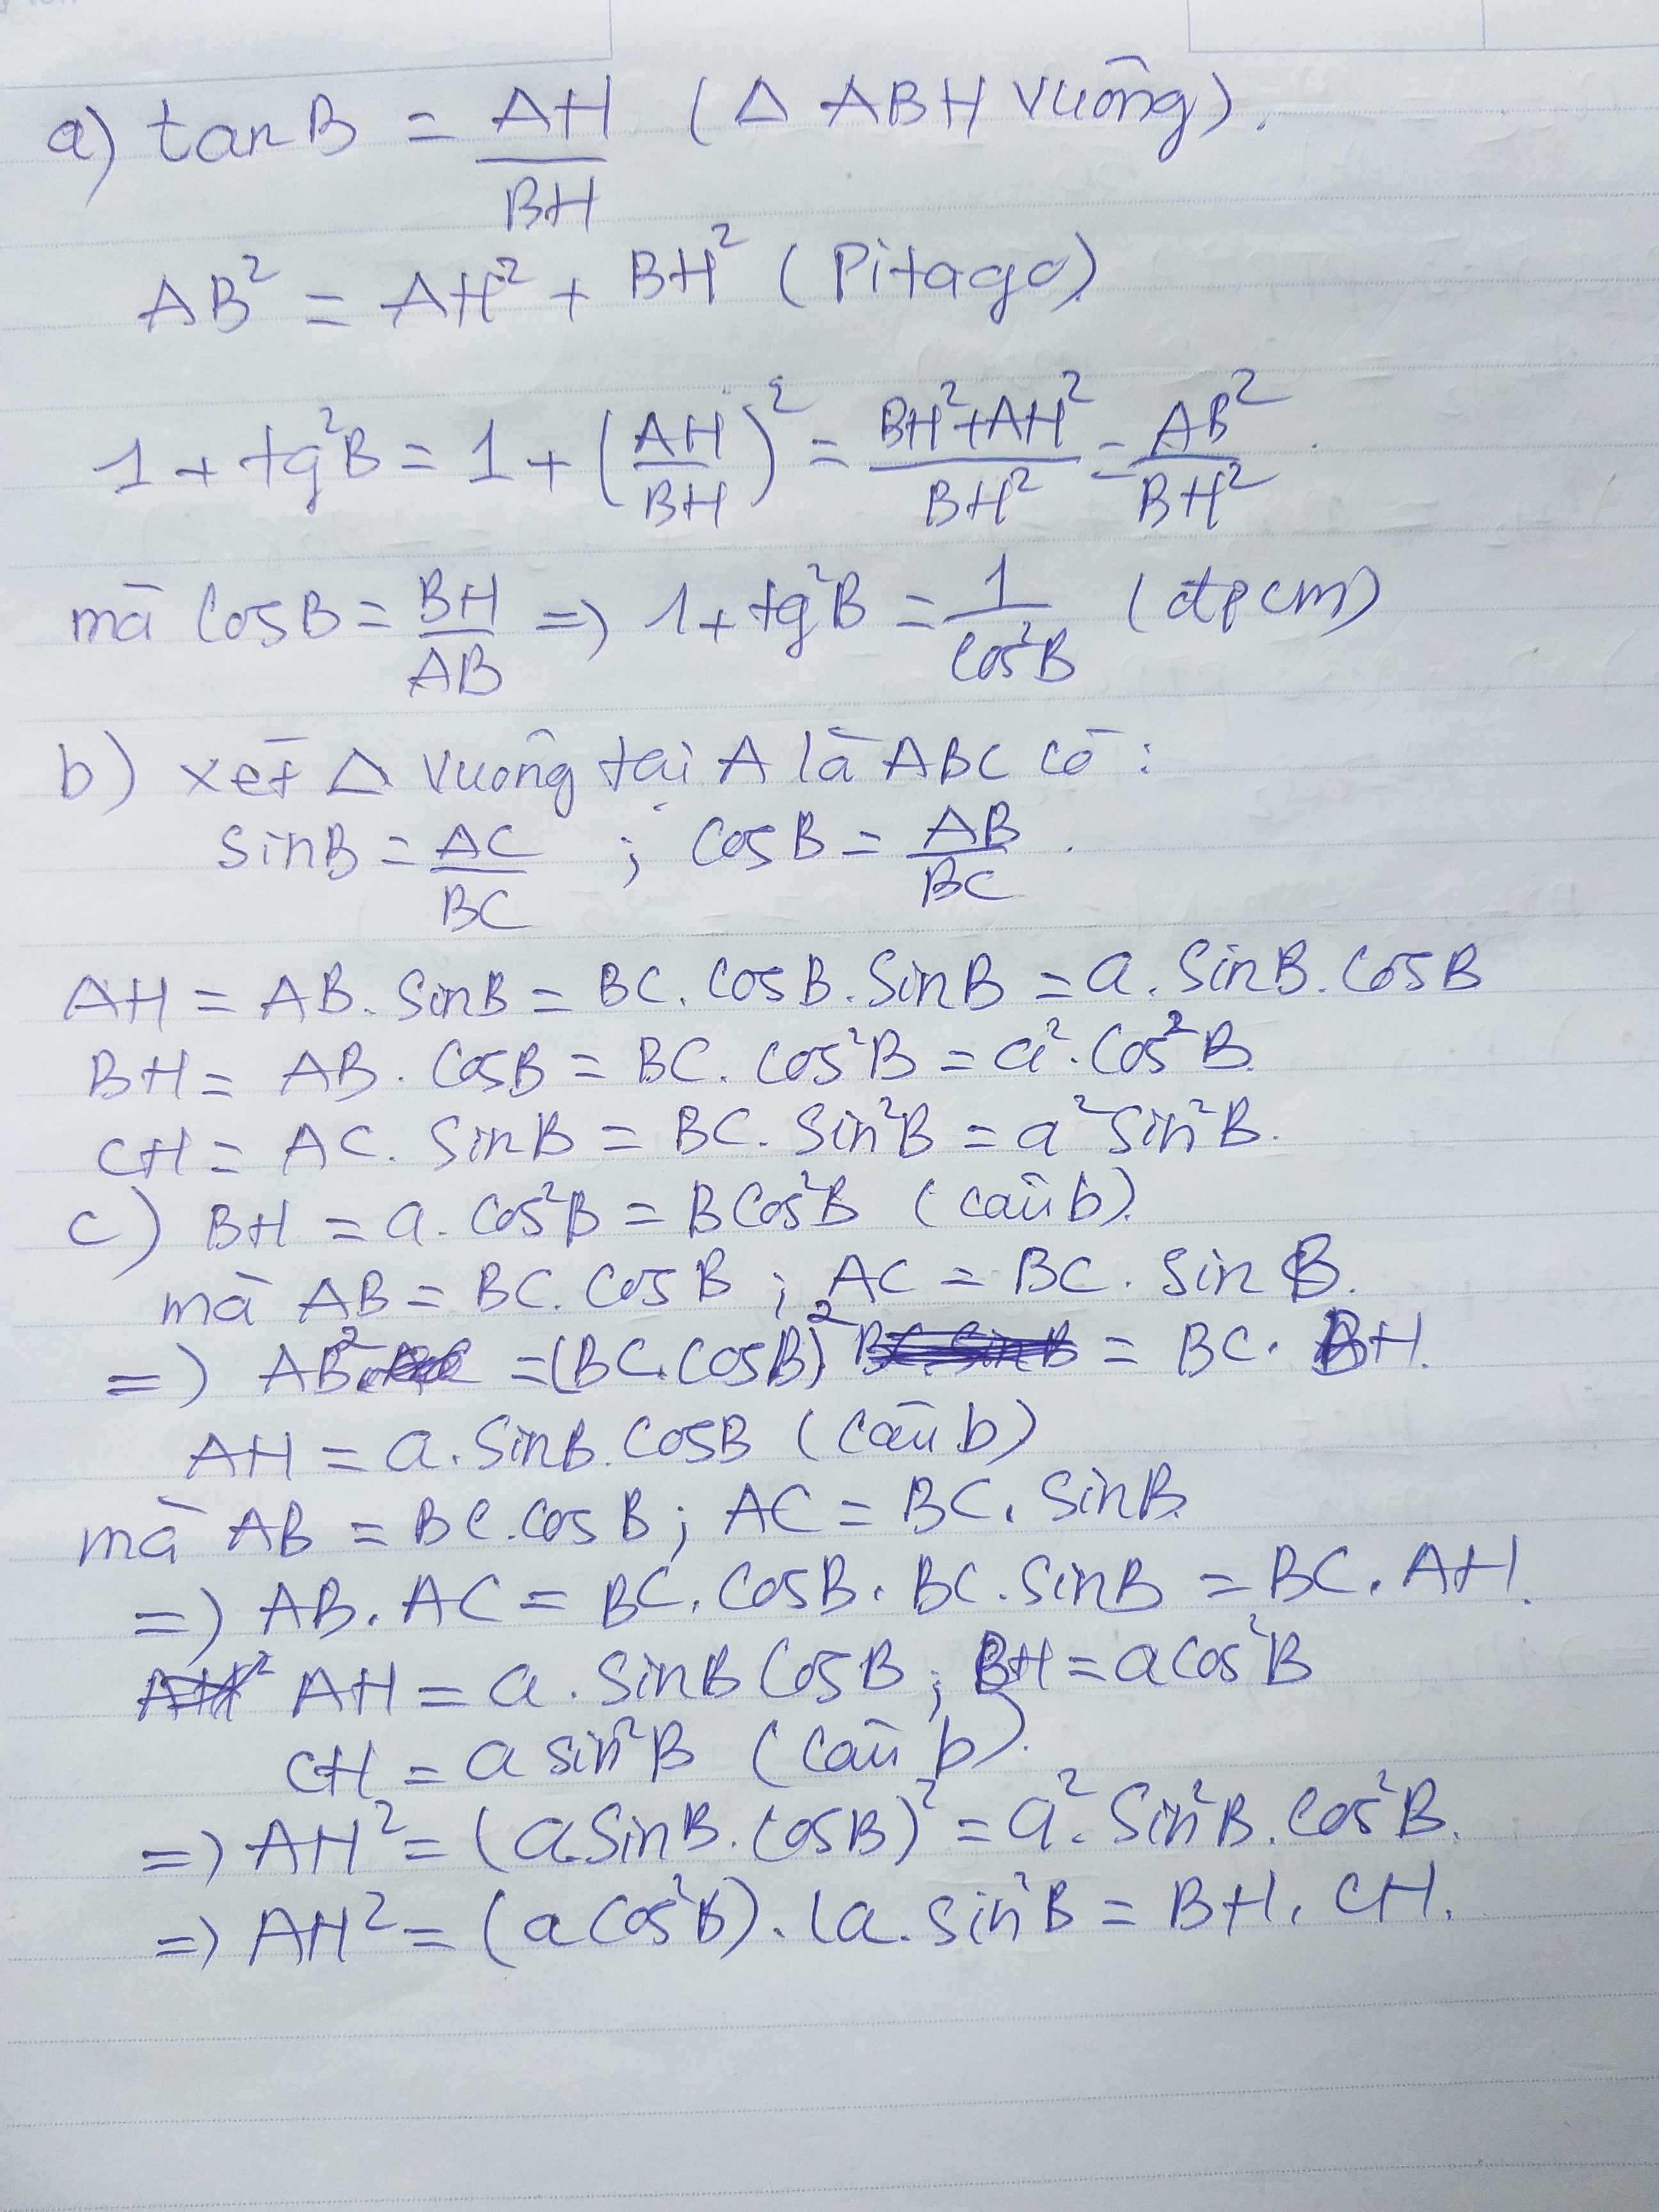 a) tanB = AH/BH (Δ ABH vuông).
AB² = AH² + BH² (Pitago)
1 + tg²B = 1 + (AH/BH)² = BH²+AH²/BH² = AB²/BH²
mà cosB = BH/AB => 1 + tg²B = 1/cos²B (đpcm)
b) xét Δ vuông tại A là ABC có:
sinB = AC/BC ; cosB = AB/BC.
AH = AB. sinB = BC. cosB. sinB = a. sinB. cosB
BH = AB. cosB = BC. cos²B = a². cos²B.
CH = AC. sinB = BC. sin²B = a² sin²B.
c) BH = a. cos²B = BCos²B (câu b).
mà AB = BC. cosB ; AC = BC. sinB.
=> AB² = (BC. cosB)² = BC. BH.
AH = a. sinB. cosB (câu b)
mà AB = BC. cosB; AC = BC. sinB.
=> AB. AC = BC. cosB. BC. sinB = BC. AH.
AH = a. sinB cosB; BH = a cos²B
CH = a sin²B (câu b).
=> AH² = (a.sinB. cosB)² = a². sin²B. cos²B.
=> AH² = (a cos²B). (a. sin²B = BH. CH.